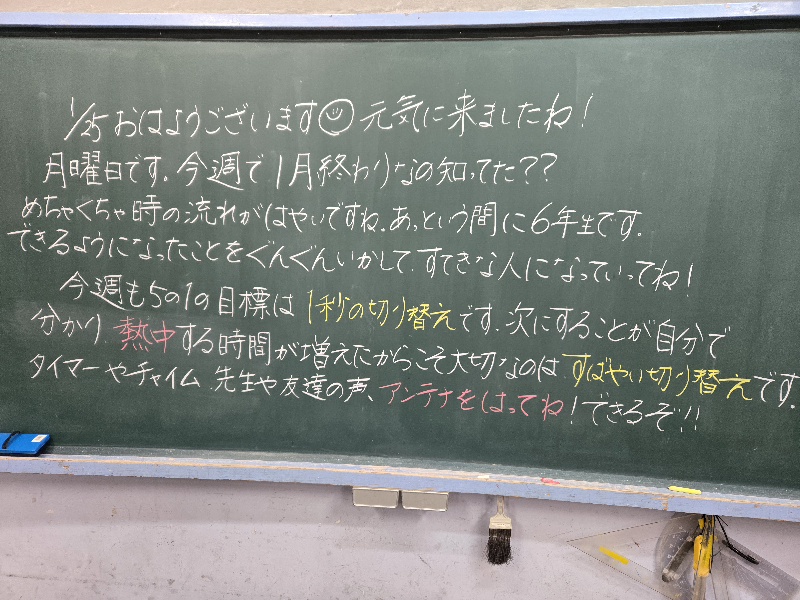 1/25 おはようございます☺ 元気に来ましたね!
月曜日です. 今週で1月終わりなの知ってた??
めちゃくちゃ時の流れがはやいですね. あっという間に6年生です.
できるようになったことをぐんぐんいかして. すてきな人になっていってね!
今週も5の1の目標は 1秒の切り替えです. 次にすることが自分で
分かり. 熱中する時間が増えたからこそ大切なのは. すばやい切り替えです.
タイマーやチャイム. 先生や友達の声、アンテナをはってね!できるぞ!!